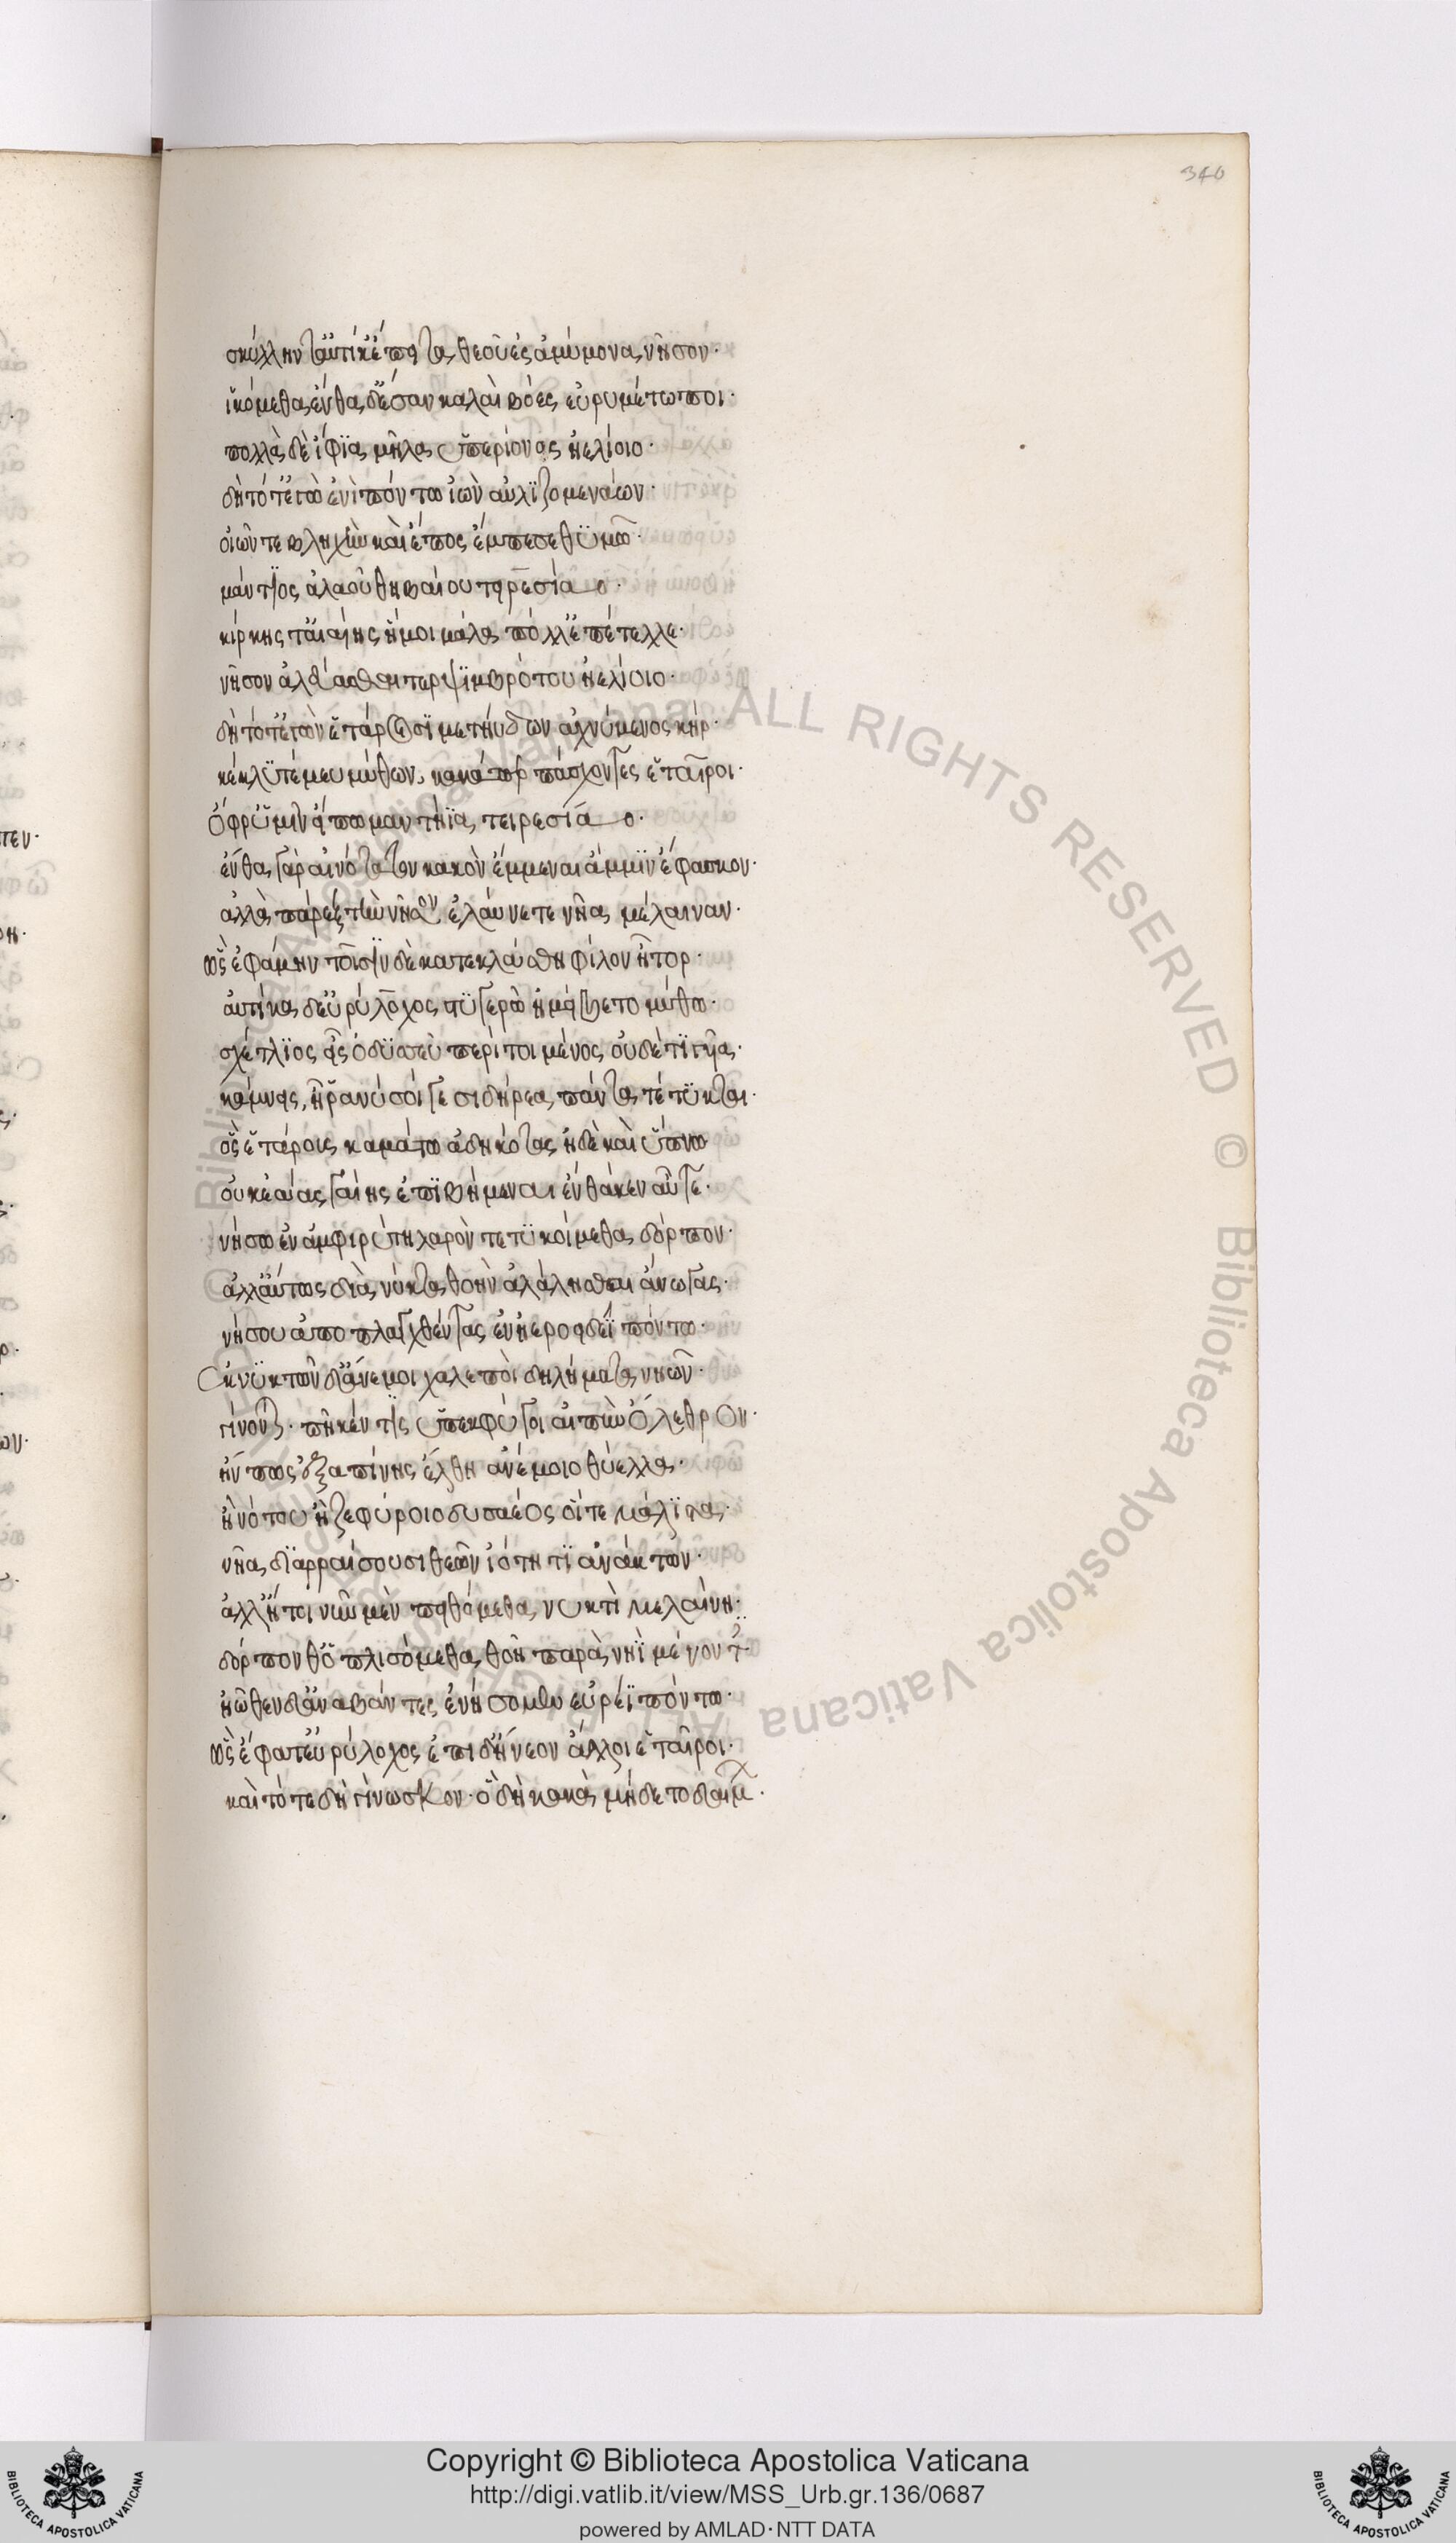 σκύλλην τ' αὐτίκ' ἔπειτα θεοῦ ἐς ἀμύμονα νῆσον·
ἱκόμεθα ἔνθα δ' ἔσαν καλαὶ βόες εὐρυμέτωποι·
πολλὰ δὲ ἴφϊα μῆλα ὑπερίονος ἠελίοιο·
δὴ τότ' ἐγὼ ἐνὶ πόντω ἰὼν αὐλϊζομενάων·
οἰῶν τε βληχὴν καὶ ἔπος ἔμπεσε θϋμῶ·
μάντϊος ἀλαοῦ θηβαίου τειρεσίαο·
κίρκης τ' αἰαίης ἥ μοι μάλα πόλλ' ἐπέτελλε·
νῆσον ἀλεύασθαι τερψϊμβρότου ἠελίοιο·
δὴ τότ' ἐγὼν ἑτάροισϊ μετηύδων ἀχνύμενος κῆρ·
κέκλϋτέ μευ μύθων, κακά περ πάσχοντες ἑταῖροι·
ὄφρ' ὕμιν εἴπω μαντήϊα τειρεσίαο·
ἔνθα γὰρ αἰνότατον κακὸν ἔμμεναι ἄμμϊν ἔφασκον·
ἀλλὰ πάρεξ τὴν νῆσον ἐλαύνετε νῆα μέλαιναν·
ὣς ἐφάμην τοῖσϊν δὲ κατεκλάσθη φίλον ἦτορ·
αὐτίκα δ' εὐρύλοχος στϋγερῶ ἠμείβετο μύθω·
σχέτλϊος εἶς ὀδϋσεῦ περί τοι μένος οὐδέ τϊ γῆα·
κάμνεις, ἦ ῥά νύ σοί γε σιδήρεα πάντα τέτϋκται·
ὅς ἑτάροις καμάτω ἀδηκότας ἠδὲ καὶ ὕπνω
οὐκ ἐάας γαίης ἐπϊβήμεναι ἔνθά κεν αὖτε·
νήσω ἐν ἀμφιρύτη λαρὸν τετϋκοίμεθα δόρπον·
ἀλλ' αὔτως διὰ νύκτα θοὴν ἀλάλησθαι ἄνωγας·
νήσου ἀποπλαγχθέντας ἐν ἠεροειδέϊ πόντω·
ἐκ νϋκτῶν δ' ἄνεμοι χαλεποὶ δηλήματα νηῶν·
γίνονται· πῆ κέν τϊς ὑπεκφύγοι αἰπὺν ὄλεθρον·
ἤν πως ἐξαπίνης ἔλθη ἀνέμοιο θύελλα·
ἢ νότου ἢ ζεφύροιο δυσαέος οἵ τε μάλϊστα
νῆα δϊαρραίσουσι θεῶν ἰότητϊ ἀνάκτων·
ἀλλ' ἤτοι νῦν μὲν πειθώμεθα νυκτὶ μελαίνη·
δόρπον θ' ὁπλισόμεθα θοῆ παρὰ νηῒ μένοντες·
ἠῶθεν δ' ἀναβάντες ἐνήσομεν εὐρέϊ πόντω·
ὣς ἔφατ' εὐρύλοχος ἐπὶ δ' ἤνεον ἄλλοι ἑταῖροι·
καὶ τότε δὴ γίνωσκον· ὃ δὴ κακὰ μήδετο δαίμων·
340
Copyright © Biblioteca Apostolica Vaticana
http://digi.vatlib.it/view/MSS_Urb.gr.136/0687
powered by AMLAD·NTT DATA